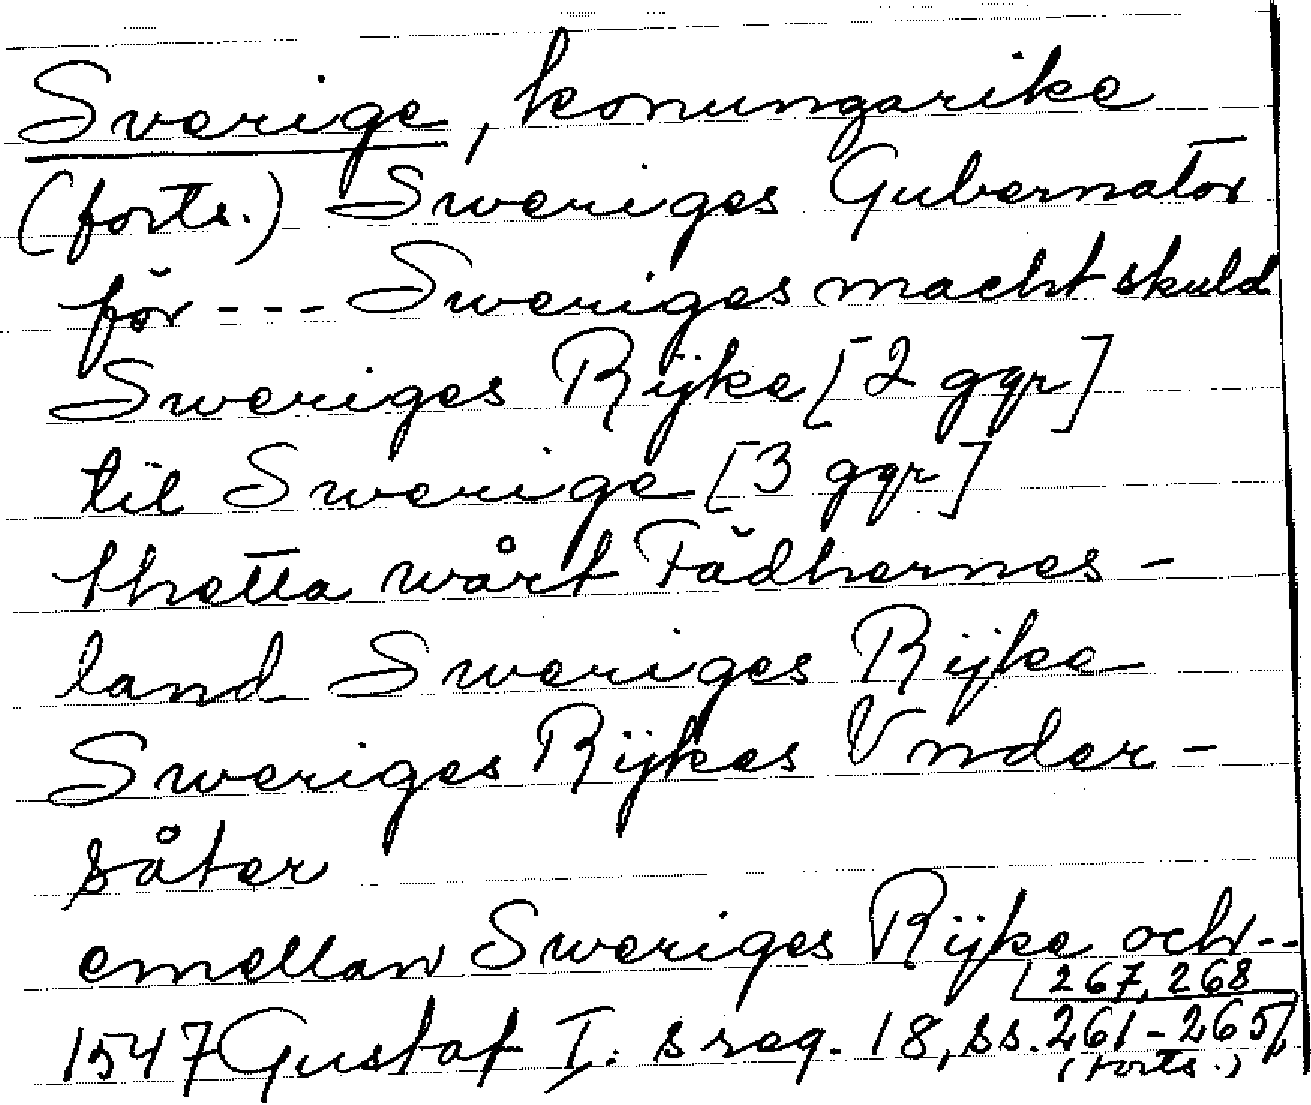 Sverige, konungarike
(forts.) Sweriges Gubernator
för --- Sweriges macht skuld
Sweriges Rijke [2 ggr]
til Swerige [3 ggr]
thetta wårt Fädhernes-
land Sweriges Rijke
Sweriges Rijkes Vnder-
såter
emellan Sweriges Rijke och --
267, 268
1547 Gustaf I:s reg. 18, ss. 261-265,
(forts.)